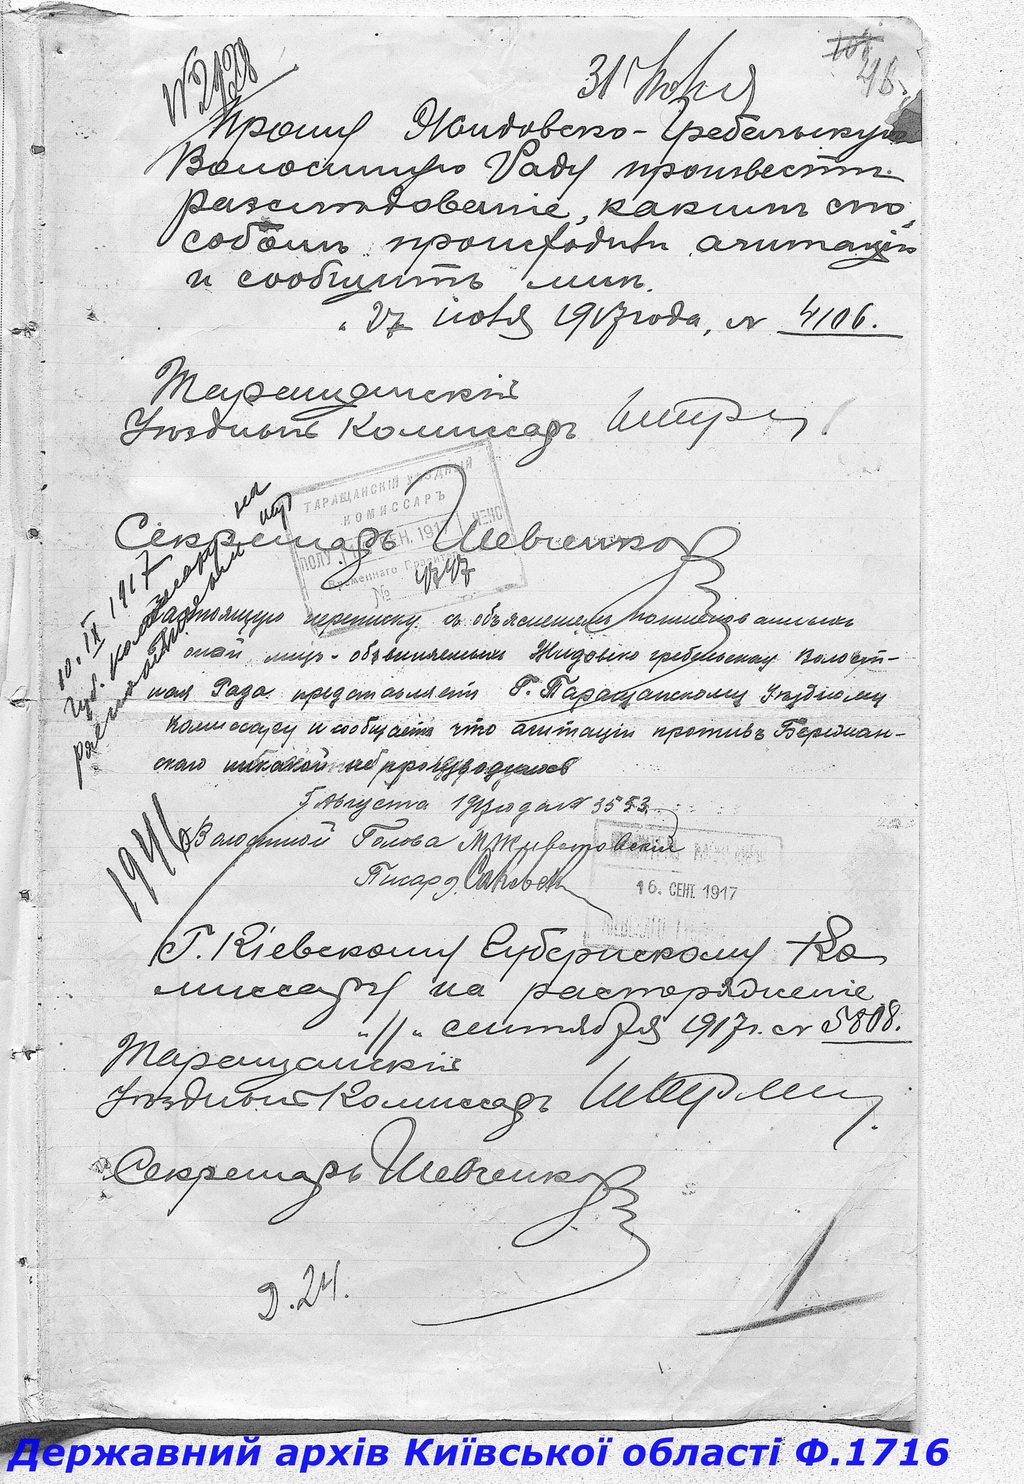 № 2428
31 Июля
108
46.
Прошу Жидовско-Гребельскую
Волостную Раду произвести
разслѣдованіе, какимъ спо-
собомъ происходила агитація
и сообщить мнѣ.
"27 июля 1917 года, № 4106.
Таращанскій
Уѣздный Комиссаръ
ТАРАЩАНСКІЙ УѢЗДНЫЙ
КОМИССАРЪ
ПОЛУ СЕН. 1917 ЧЕНО
Временнаго Правит
№
Секретарь Шевченко
10. IX 1917
Губ. комиссару на
Настоящую переписку съ объясненіемъ
обвиняемыхъ Жидовско гребельская Волост-
ная Рада представляетъ Г. Таращанскому Уѣздному
Комиссару и сообщаетъ что агитаціи противъ Бержман-
скаго никакой не производилось
5 Августа 1917 года № 3553
1946
Волостной Голова М Животовскій
Писарь
16. СЕН. 1917
Г. Кіевскому Губернскому Ко
миссару на распоряженіе
"11" сентября 1917 г. № 5808.
Таращанскій
Уѣздный Комиссаръ
Секретарь Шевченко
Э. 24.
Державний архів Київської області Ф.1716